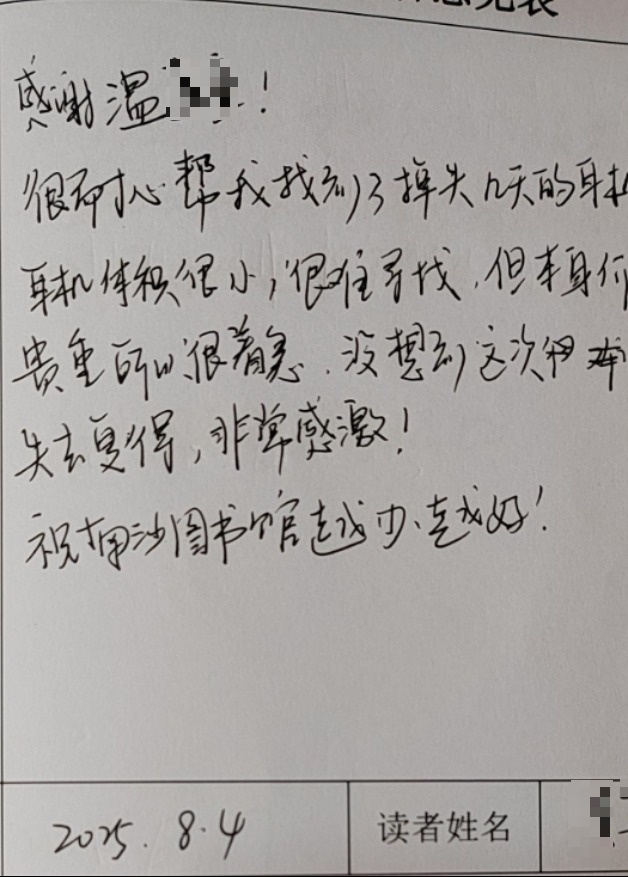 意见表
感谢温！
很耐心帮我找到了掉失几天的耳机
耳机体积很小，很难寻找，但本身价
贵重所以很着急，没想到这次
失去复得，非常感激！
祝南沙图书馆越办越好！
2025.8.4 读者姓名